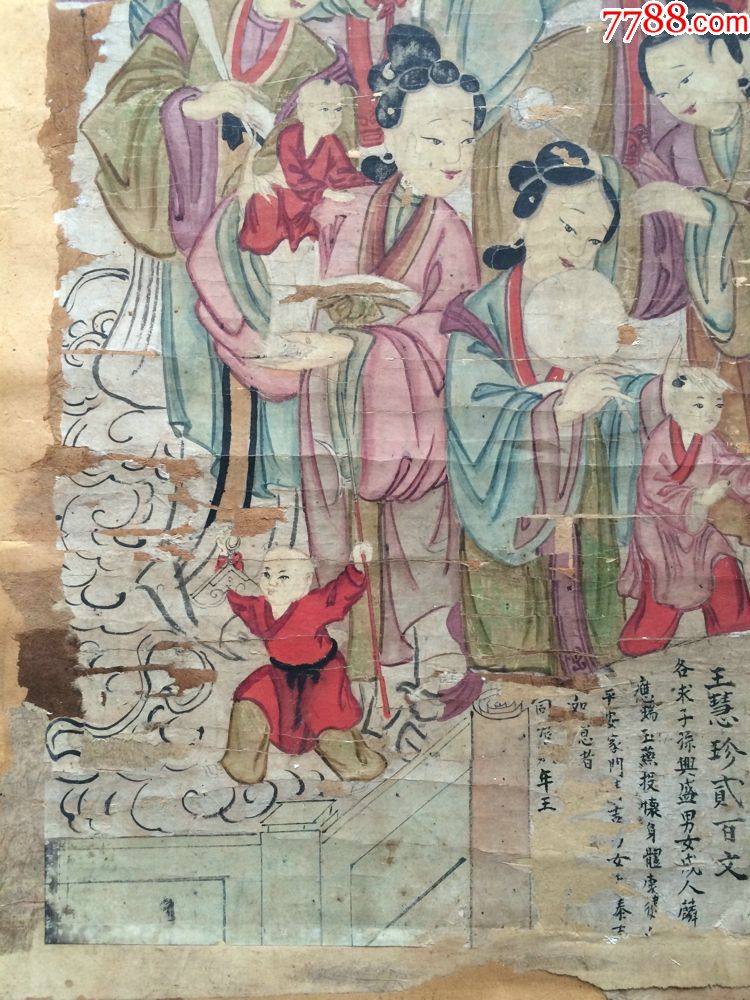 7788.com
王慧珍貳百文
各求子孫興盛男女代人麟
應瑞玉燕投懷身體康健
平安家門吉女泰吉
如意者
同治年王